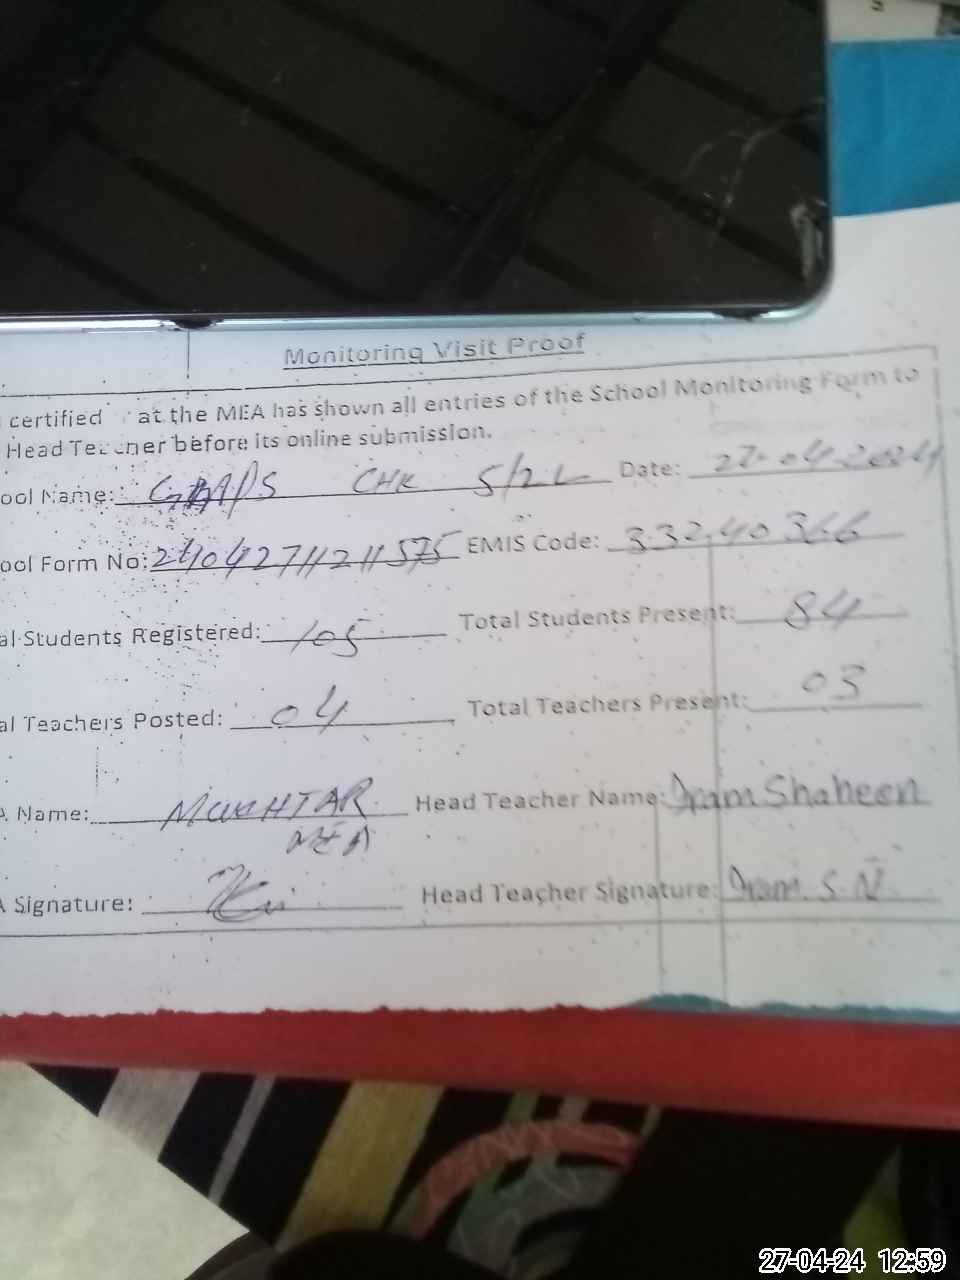 Monitoring Visit Proof
certified at the MEA has shown all entries of the School Monitoring Form to
Head Teacher before its online submission.
ool Name: CHK 5/2L Date: 27-04-2024
ool Form No: 24042711211575 EMIS Code: 33240366
al Students Registered: 105 Total Students Present: 84
al Teachers Posted: 04 Total Teachers Present: 03
A Name: MUKHTAR Head Teacher Name: Iram Shaheen
MEA
A Signature: Head Teacher Signature: Iram. S. N
27-04-24 12:59